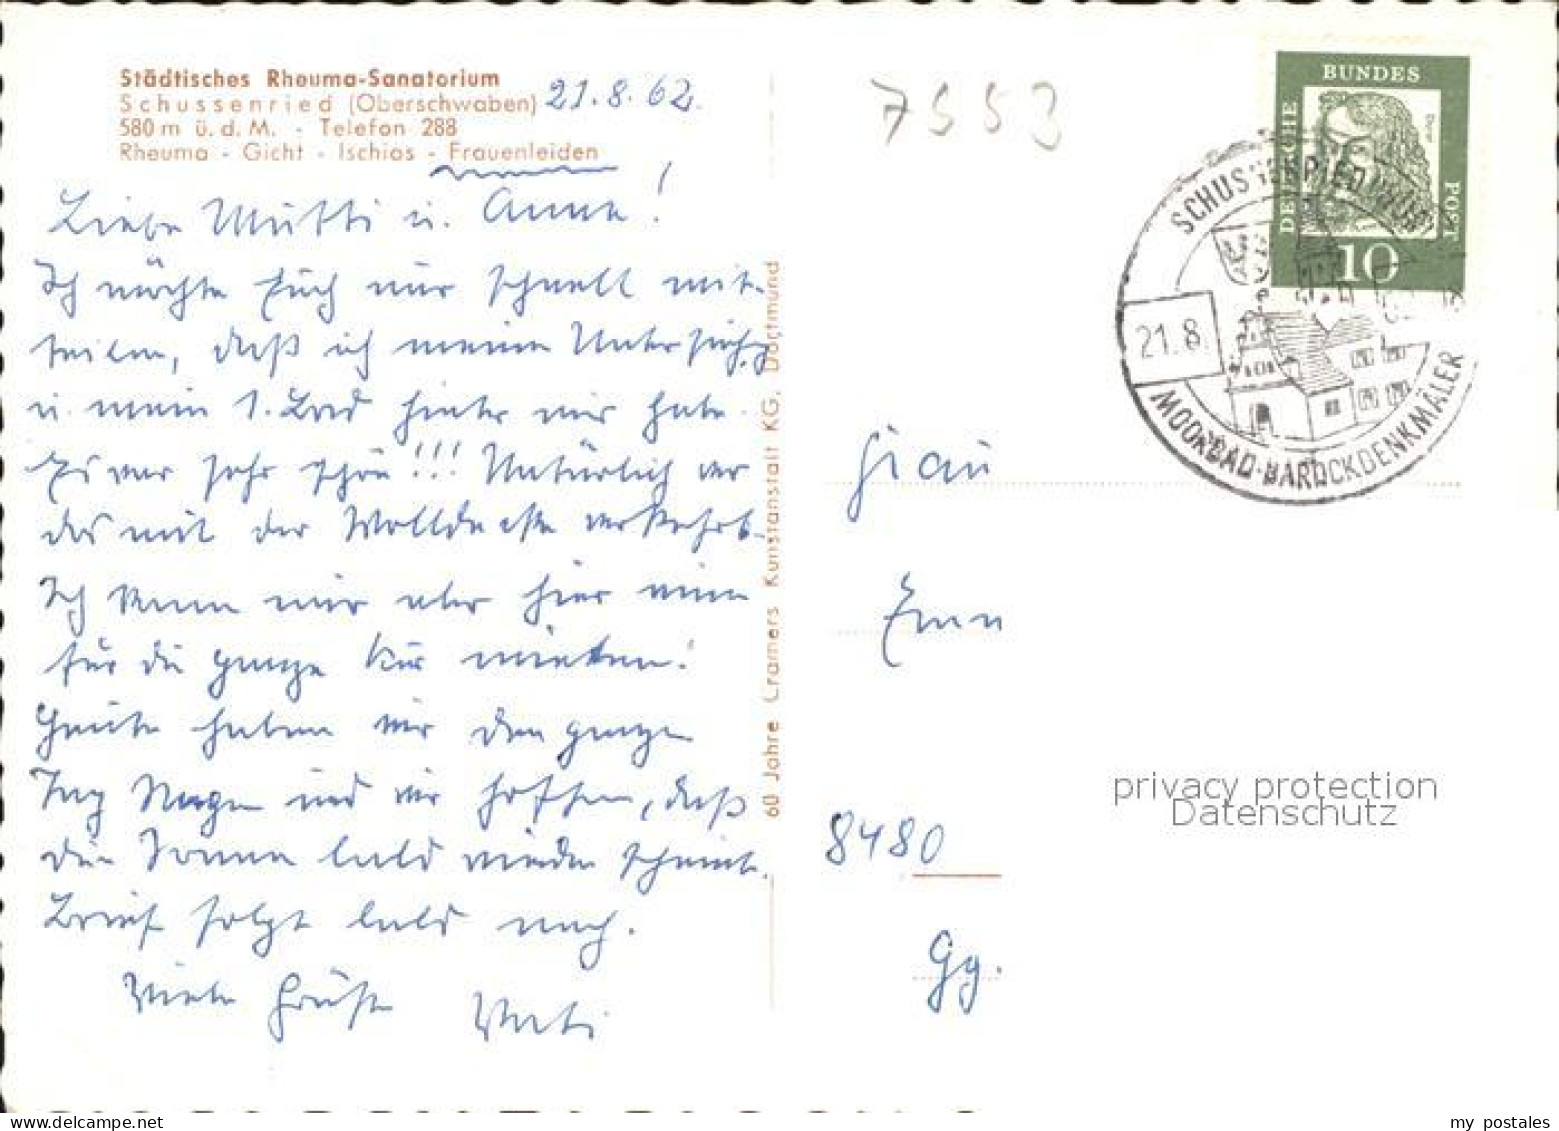 Städtisches Rheuma-Sanatorium
Schussenried (Oberschwaben)
580 m ü. d. M. - Telefon 288
Rheuma - Gicht - Ischias - Frauenleiden
21.8.62.
Liebe Mutti u. Anna!
Ich möchte Euch nur schnell mit-
teilen, daß ich meine Untersuchg
u. mein 1. Bad hinter mir habe.
Es war sehr schön!!! Natürlich war
das mit der Wolldecke verkehrt.
Ich kann mir aber hier eine
für die ganze Kur mieten!
Heute haben wir den ganzen
Tag Regen und wir hoffen, daß
die Sonne bald wieder scheint.
Brief folgt bald nach.
Viele Grüße
60 Jahre Cramers Kunstanstalt KG, Dortmund
7553
DEUTSCHE BUNDES POST
Dürer
10
SCHUSSENRIED
21.8.
MOORBAD-BAROCKDENKMÄLER
Frau
8480
privacy protection
Datenschutz
my postales